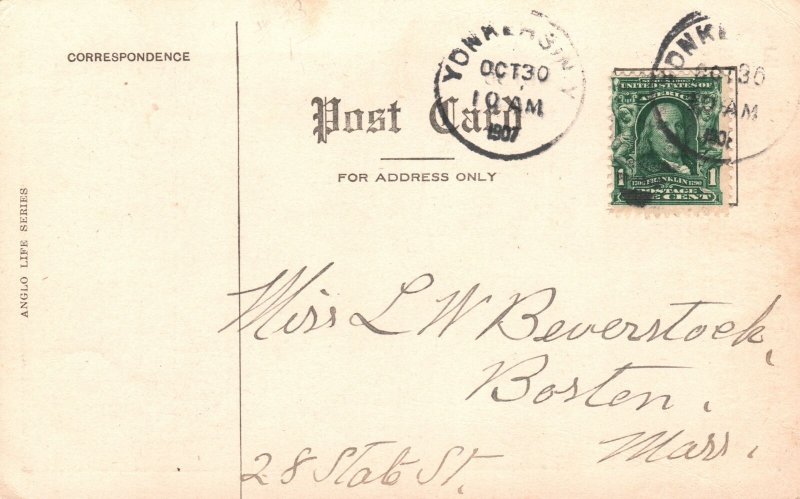 CORRESPONDENCE
YONKERS N.Y.
OCT 30
10 AM
1907
Post Card
FOR ADDRESS ONLY
ONKE
OCT 30
10 AM
190
UNITED STATES OF
AMERICA
1 FRANKLIN 1
POSTAGE
ONE CENT
ANGLO LIFE SERIES
Miss L W Beverstock,
Boston,
Mass.
28 State St.